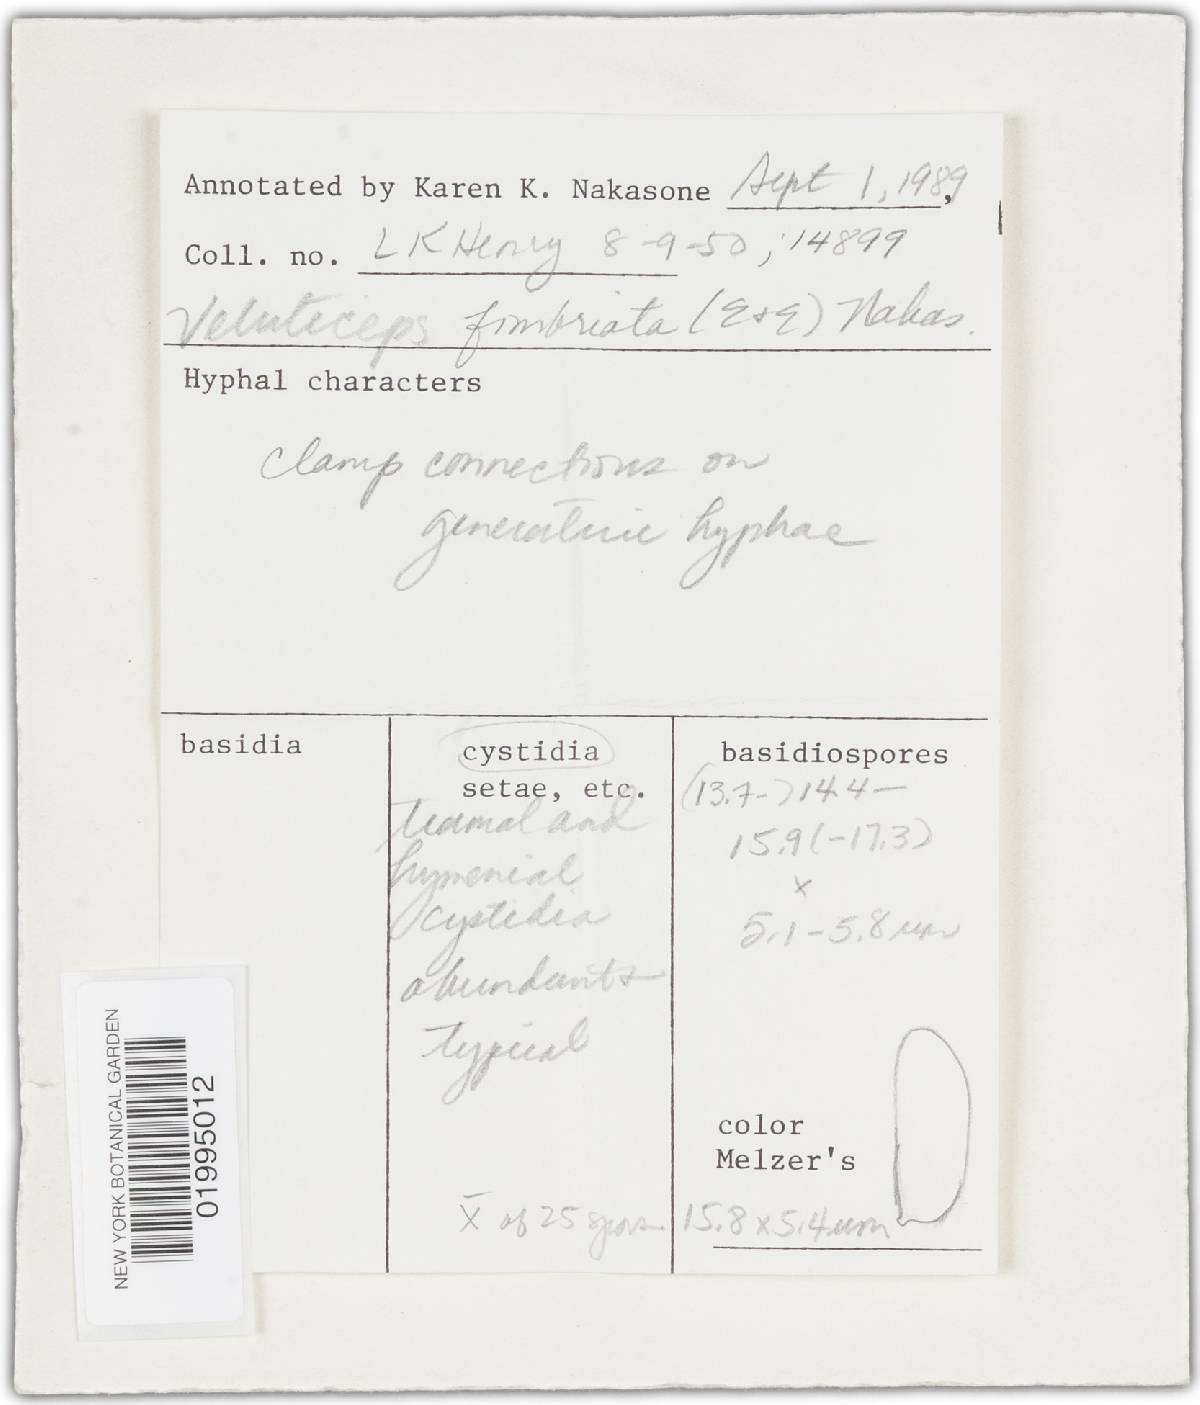 Annotated by Karen K. Nakasone Sept 1, 1989,
Coll. no. LK Henry 8-9-50; 14899
Veluticeps fimbriata (E+E) Nakas.
Hyphal characters
clamp connections on
generative hyphae
basidia
cystidia
setae, etc.
tramal and
hymenial
cystidia
abundant &
typical
basidiospores
(13.7-) 14.4-
15.9 (-17.3)
x
5.1-5.8 µm
color
Melzer's
X̄ of 25 spores 15.8 x 5.4 µm
NEW YORK BOTANICAL GARDEN
01995012